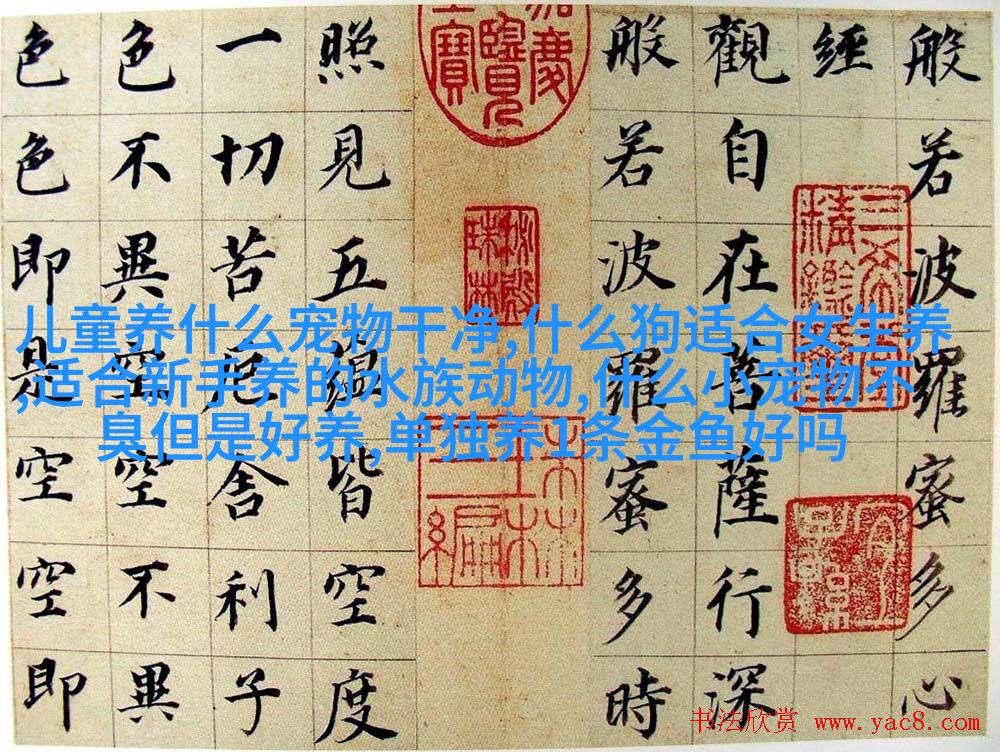 般若波羅蜜多心
經
觀自在菩薩行深
般若波羅蜜多時
照見五蘊皆空度
一切苦厄舍利子
色不異空空不異
色色即是空空即
儿童养什么宠物干净,什么狗适合女生养
,适合新手养的水族动物,什么小宠物不
臭但是好养,单独养1条金鱼好吗
三希堂精鑑璽
秘殿珠林
书法欣赏 www.yac8.com